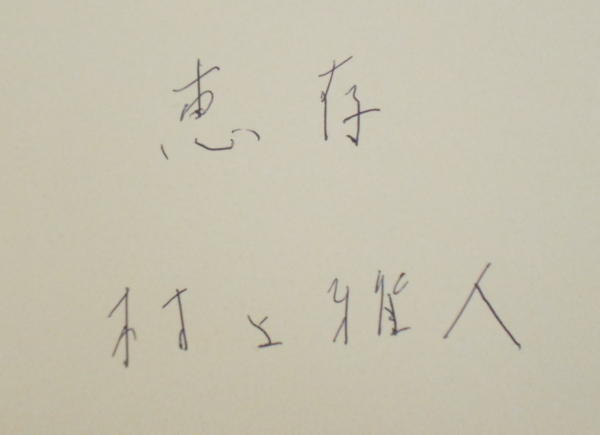 恵存
村上雅人